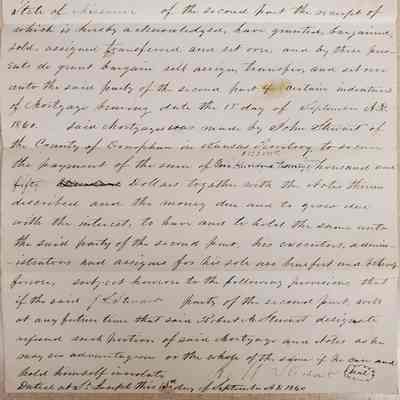 State of Missouri of the second part the receipt of
which is hereby acknowledged, have granted, bargained
sold, assigned transferred and set over, and by these pres-
ents do grant bargain sell assign, transfer, and set over
unto the said party of the second part certain indenture
of Mortgage bearing date the 1st day of September A.D.
1860. Said Mortgage was made by John Stewart of
the County of Doniphan in Kansas Territory to secure
the payment of the sum of One Hundred Twenty Thousand and
fifty Dollars together with the Notes therein
described and the money due and to grow due
with the interest, to have and to hold the same unto
the said party of the second part, his executors, admin-
istrators and assigns for his sole use benefit and behoof
forever, subject however to the following provisions that
if the said Stewart party of the second part, will
at any future time that said Robert M Stewart designate
refund such portion of said Mortgage and Notes as he
may on the whole of the same if he can and
hold himself inviolate
Dated at St. Joseph this day of September A.D. 1860
Seal